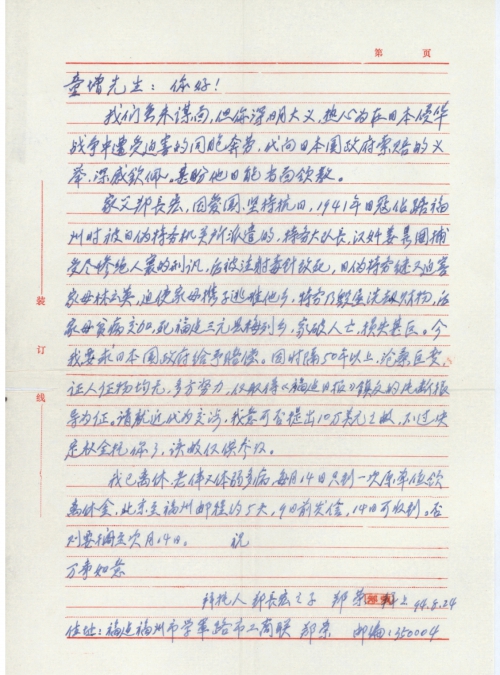 第 页
童增先生：你好！
我们虽未谋面，但你深明大义，热心为在日本侵华
战争中遭受迫害的同胞奔劳，代向日本国政府索赔的义
举，深感钦佩。甚盼他日能书面领教。
家父郑长宏，因爱国，坚持抗日，1941年日寇占踞福
州时被日伪特务机关所派遣的，特务大队长，汉奸姜
受尽惨绝人寰的刑讯，后被注射毒针致死，日伪特务继又迫害
家母林玉英，迫使家母携子逃难他乡，特务乃数度洗劫财物，后
家母贫病交加，死福建三元县梅列乡，家破人亡，损失甚巨。今
我要求日本国政府给予赔偿。因时隔50年以上，沧桑巨变
证人证物均无，多方努力，仅取得《福建日报》的
为证。请就近代为交涉，我意可否提出10万美元之数，不过决
定权全托你了，该数仅供参考。
我已离休，老伴又体弱多病，每月14日只到一次原单位领
离休金，北京至福州邮程约5天，9日前发信，14日可收到。否
则要搁至次月14日。 祝
万事如意
拜托人 郑长宏之子 郑荣 上 94.8.24
住址：福建福州市学军路市工商联 郑荣 邮编：350004
装
订
线